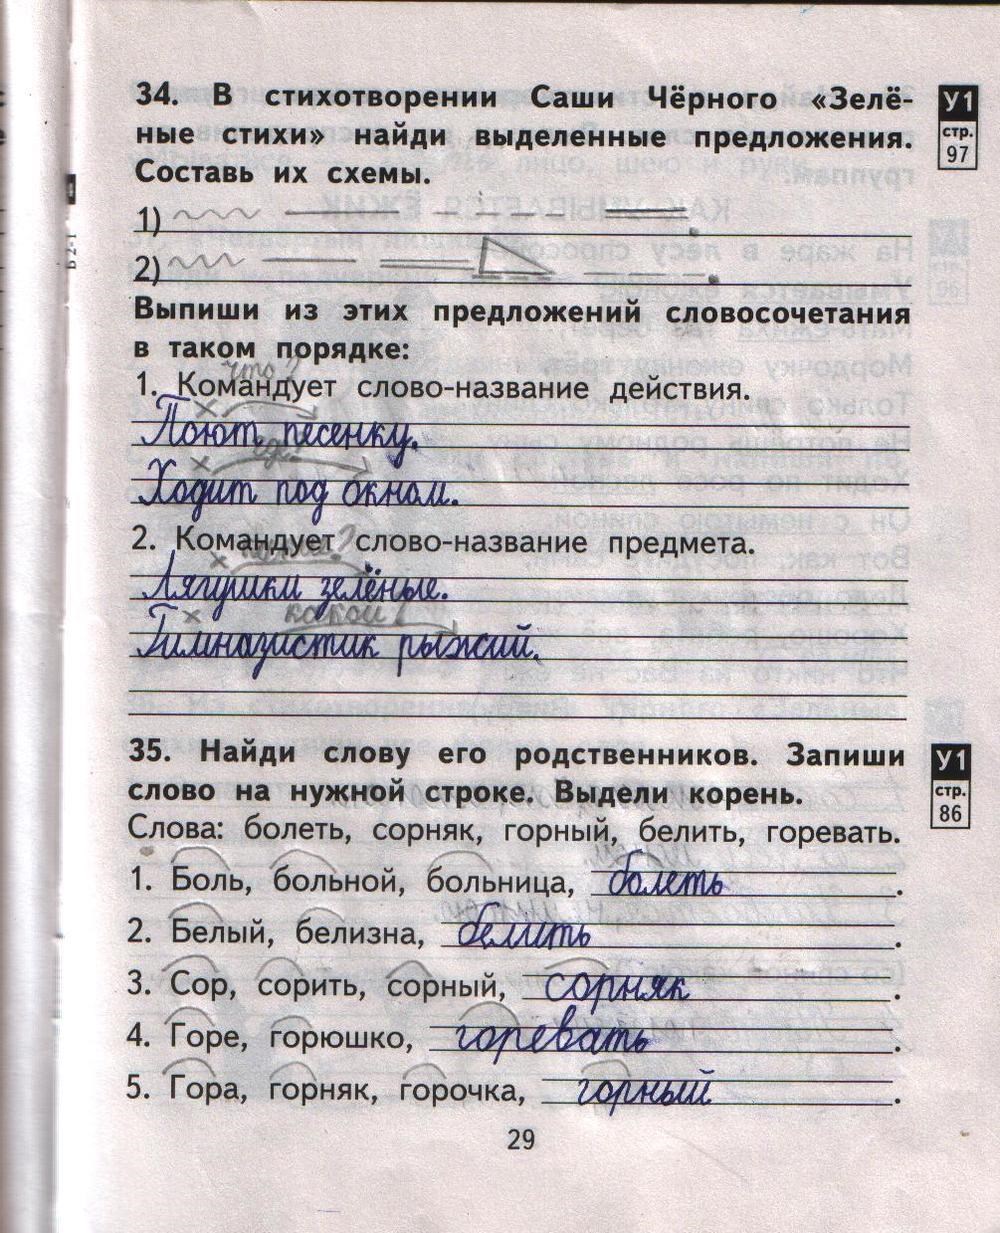 34. В стихотворении Саши Чёрного «Зелё-
ные стихи» найди выделенные предложения.
Составь их схемы.
У1
стр.
97
1)
2)
Выпиши из этих предложений словосочетания
в таком порядке:
1. Командует слово-название действия.
что?
Поют песенку.
где?
Ходит под окном.
2. Командует слово-название предмета.
какие?
Лягушки зелёные.
какой
Гимназистик рыжий.
35. Найди слову его родственников. Запиши
слово на нужной строке. Выдели корень.
У1
стр.
86
Слова: болеть, сорняк, горный, белить, горевать.
1. Боль, больной, больница, болеть.
2. Белый, белизна, белить.
3. Сор, сорить, сорный, сорняк.
4. Горе, горюшко, горевать.
5. Гора, горняк, горочка, горный.
29